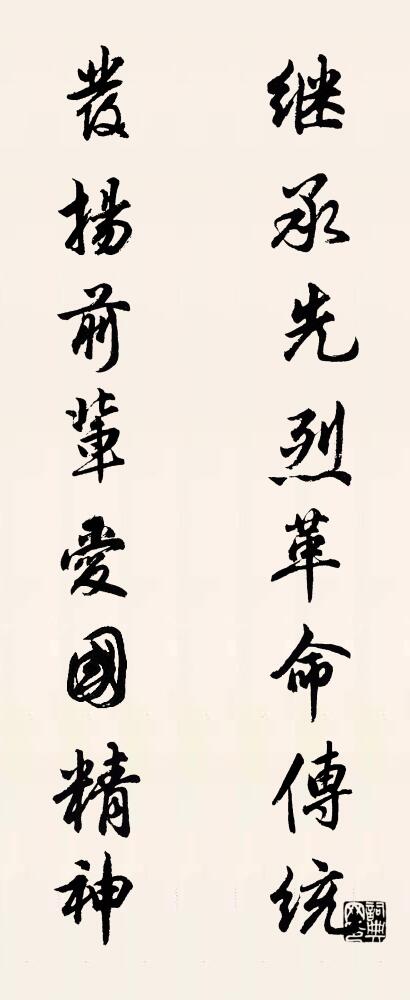 继承先烈革命傳統
發揚前輩愛國精神
詞典网